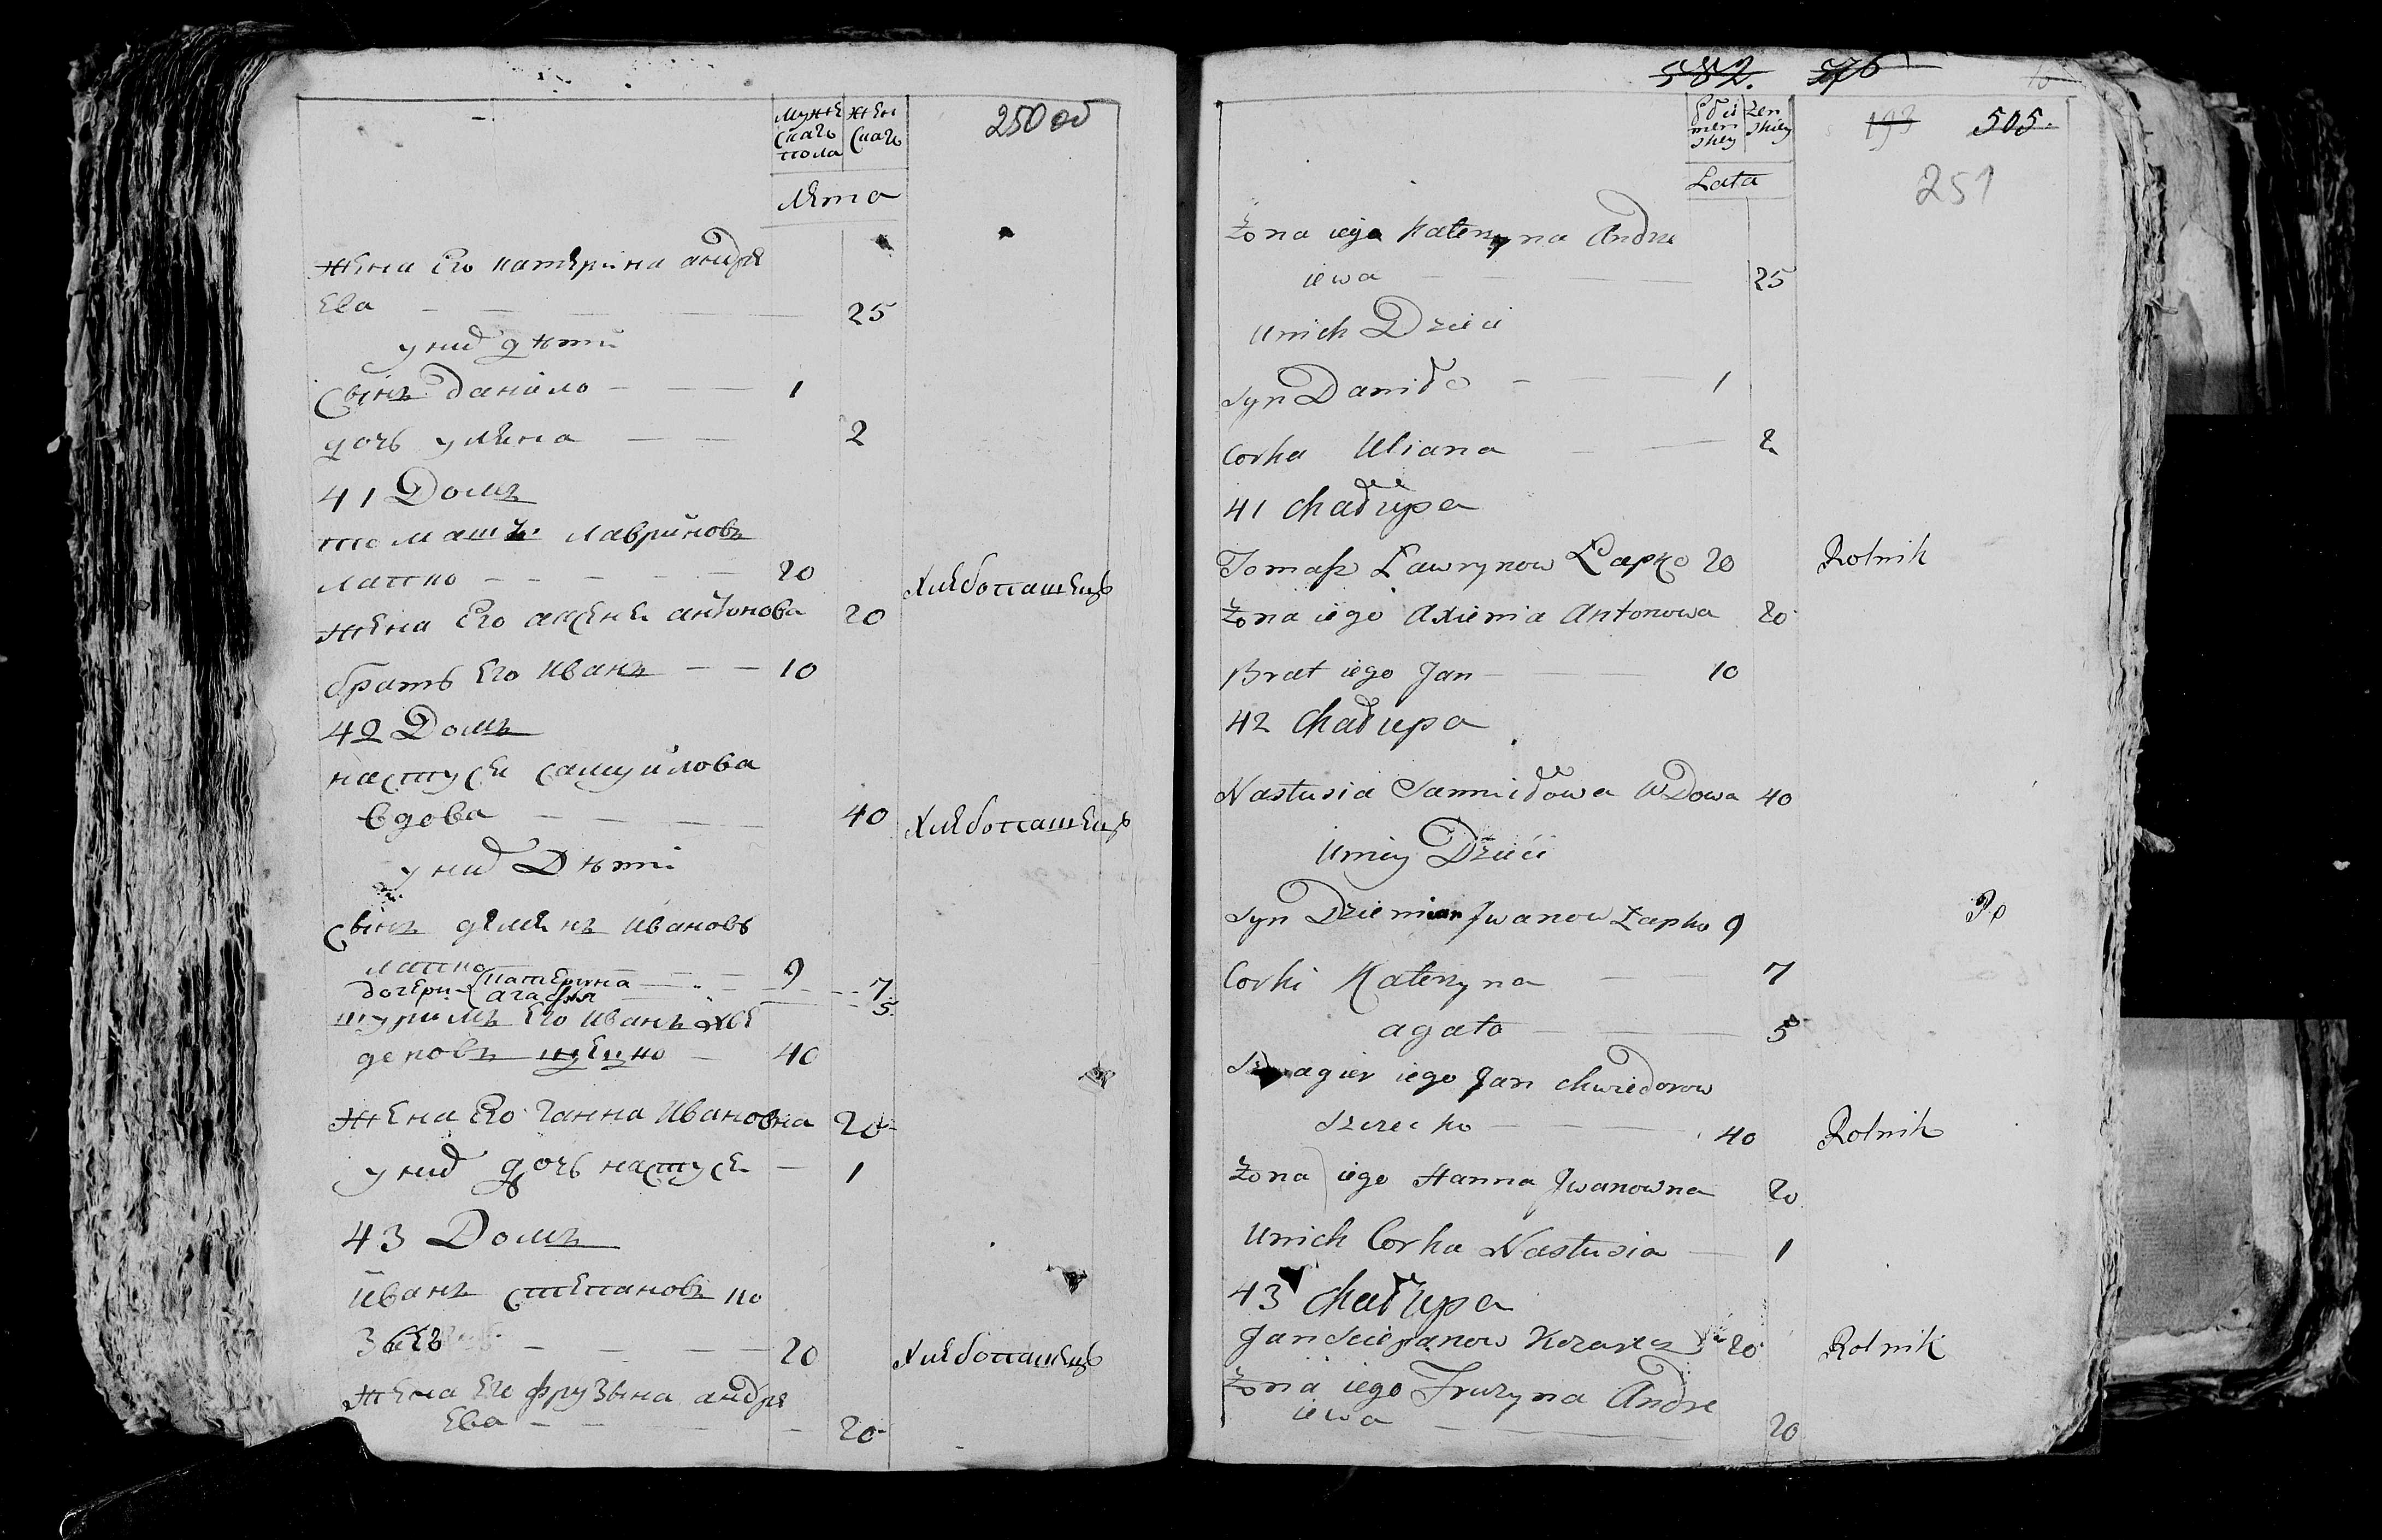 Мужеска пола Женска
250 об
Лета
Жена Его катерина андре
Ева 25
у них дети
Сынъ данило 1
дочь улина 2
41 Домъ
томашъ лавриновъ
лапко 20 хлебопашецъ
Жена Его аксеня антонова 20
братъ Его иванъ 10
42 Домъ
настуся самуйлова
вдова 40 хлебопашецъ
у них Дети
Сынъ демянъ ивановъ
лапко 9
дочери катерина 7
агафия 5
шуринъ Его иванъ хве
доровъ 40
Жена Его ганна ивановна 20
у них дочь настуся 1
43 Домъ
иванъ степановъ ко
20 хлебопашецъ
Жена Его фрузына андре
Ева 20
582. 576
Zenskiey
193 505.
Lata
251
Żona iego Katerzyna Andre
iewa 25
Unich Dzieci
Syn Daniło 1
Corka Uliana 2
41 Chałupa
Tomasz Ławrynow Łapko 20 Rolnik
Żona iego Axienia Antonowa 20
Brat iego Jan 10
42 Chałupa
Nastusia Samuiłowa Wdowa 40
Uniey Dzieci
Syn Dziemian Jwanow Łapko 9
Corki Katerzyna 7
agata 5
Szwagier iego Jan Chwiedorow
40 Rolnik
Żona iego Hanna Jwanowna 20
Unich Corka Nastusia 1
43 Chałupa
Jan Sciepanow 20 Rolnik
Żona iego Fruzyna Andre
iewa 20